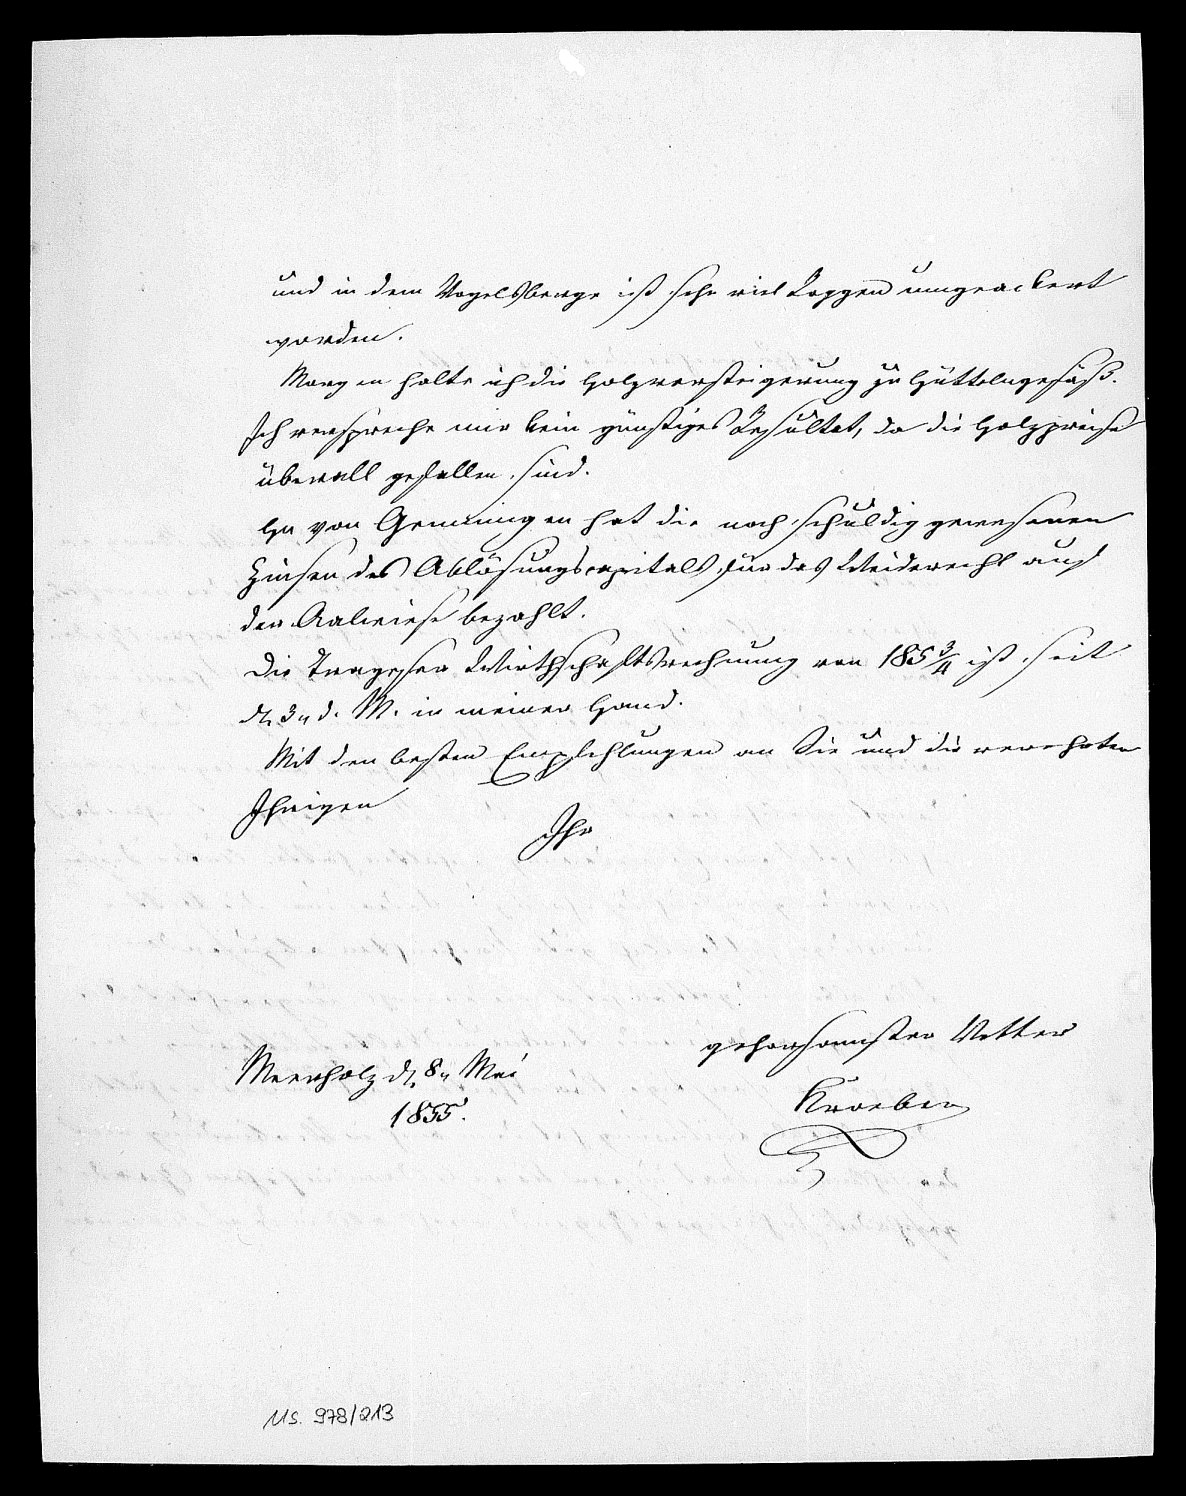 und in dem Vogelsberge ist sehr viel Roggen umgeackert
worden.
Morgen halte ich die Holzversteigerung zu Hüttelngesäß.
Ich verspreche mir kein günstiges Resultat, da die Holzpreise
überall gefallen sind.
Hr von Gemmingen hat die noch schuldig gewesenen
Zinsen des Ablösungscapitals für das Weiderecht auf
der Aalwiese bezahlt.
Die Trageser Wirthschaftsrechnung von 1853/4 ist seit
d. 3n d. M. in meiner Hand.
Mit den besten Empfehlungen an Sie und die verehrten
Ihrigen
Ihr
gehorsamster Vetter
Kroeber
Meerholz d. 8n Mai
1855.
Ms. 978/213